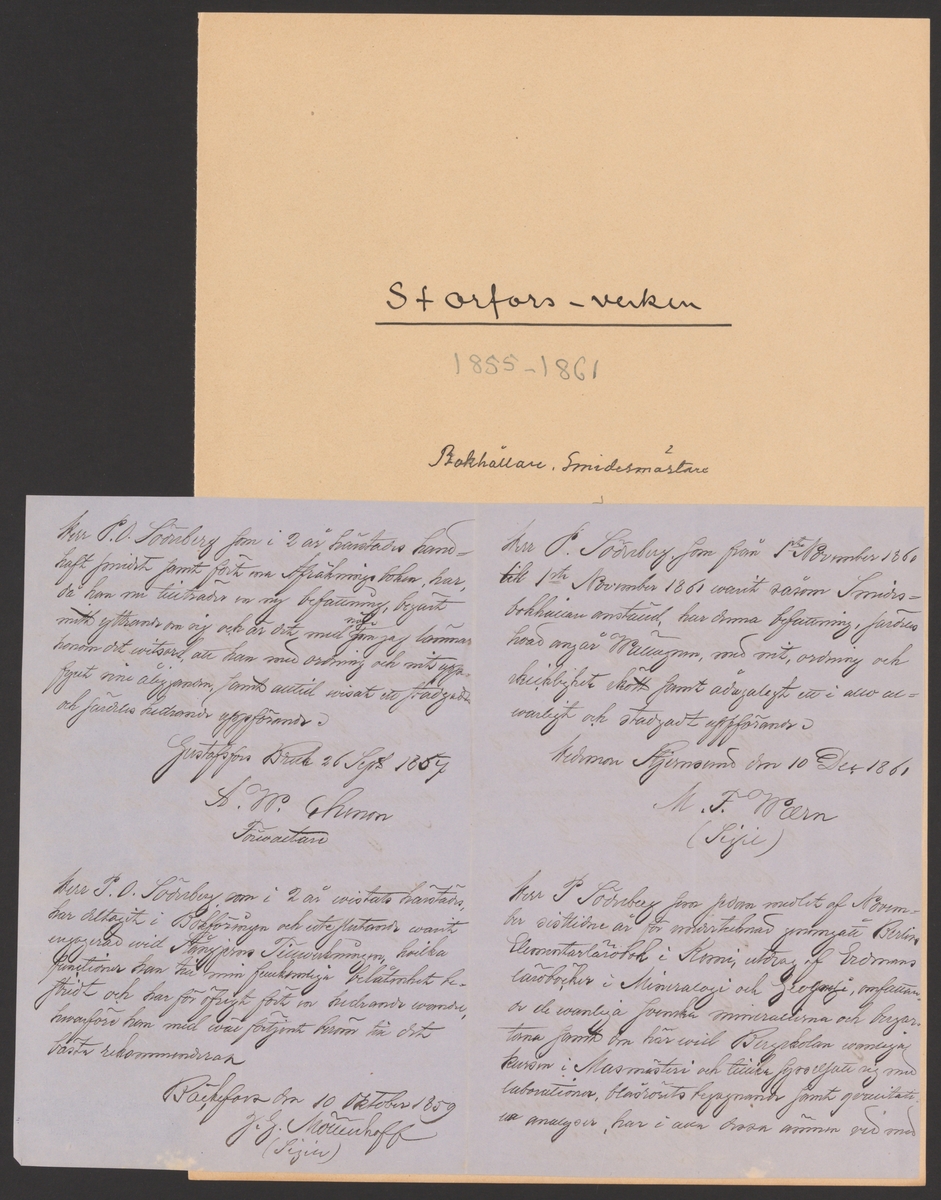 Storfors-verken
1855-1861
Bokhållare. Smidesmästare
Herr P. O. Söderberg som i 2 år härstädes hand=
haft smidet samt fört
då han nu tillträder en ny befattning, begärt
mitt yttrande om sig och är det med nöje jag lämnar
honom det witsord, att han med ordning och nit upp-
fyllt sine åligganden, samt alltid wisat ett stadgadt
och särdeles hedrande uppförande
Gustafsfors Bruk 26 Sept 1857
A. W.
Förvaltare
Herr P. O. Söderberg som i 2 år wistats härstädes,
har deltagit i Bokföringen och uteslutande warit
engagerad wid Tillwerkningen, hwilka
functioner han till min fullkomliga belåtenhet be-
stridt och har för öfrigt fört en hedrande wandel,
hwarföre han med wäl förtjent beröm till det
bästa rekommenderas
Bäckefors den 10 Oktober 1859
J. G. Möllenhoff
(Sigill)
Herr P. Söderberg, som från 1ste November 1860
till 1ste November 1861 warit såsom Smides=
bokhållare anställd, har denna befattning, särdeles
hwad angår med nit, ordning och
skicklighet skött samt ådagalagt ett i allo al=
warligt och stadgadt uppförande
Hedman Stjernsund den 10 Dec 1861
M. F. Wærn
(Sigill)
Herr P Söderberg som sedan medlet af Novem-
ber sistlidne år för undertecknad genomgått Berlins
Elementarlärobok i Kemi, utdrag af Erdmans
läroböcker i Mineralogi och Geologi, omfattan-
de de wanliga svenska mineralierna och bergar-
terna samt den här wid Bergskolan wanliga
kursen i Masmästeri och tillika sysselsatt sig med
laborationer, blåsrörets begagnande samt qvantitati-
va analyser, har i alla dessa ämnen